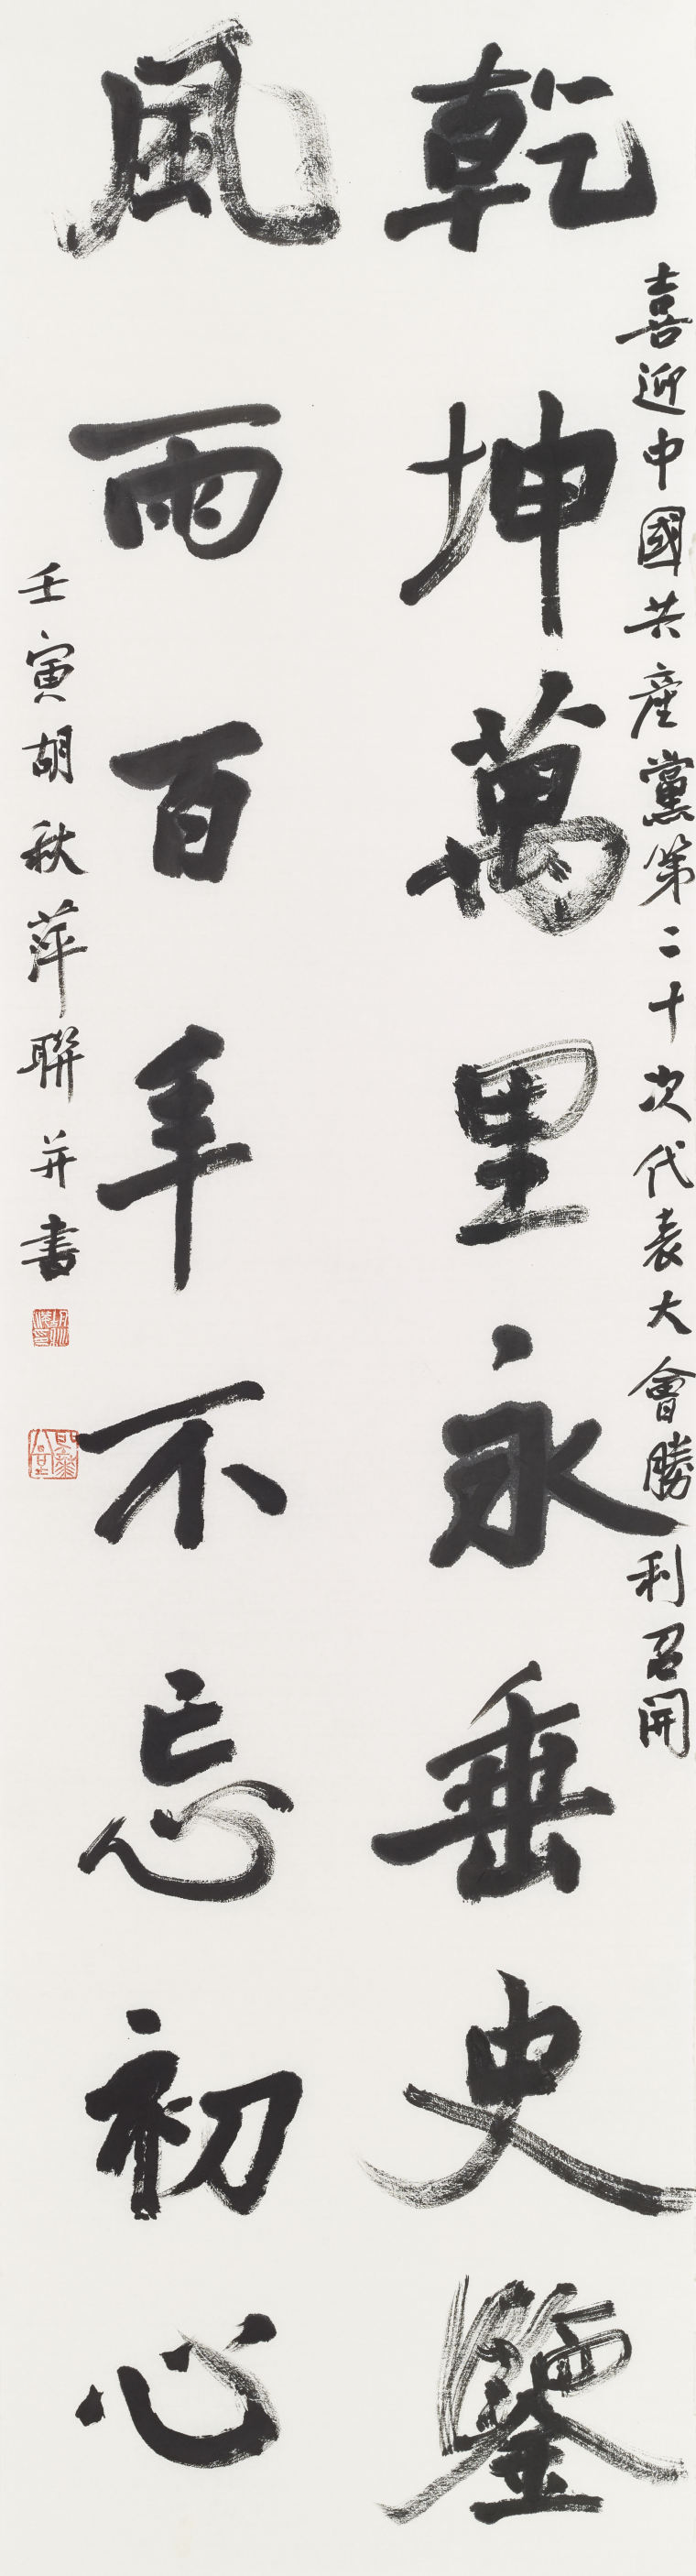 喜迎中國共產黨第二十次代表大會勝利召開
乾坤萬里永垂史鑒
風雨百年不忘初心
壬寅胡秋萍聯并書